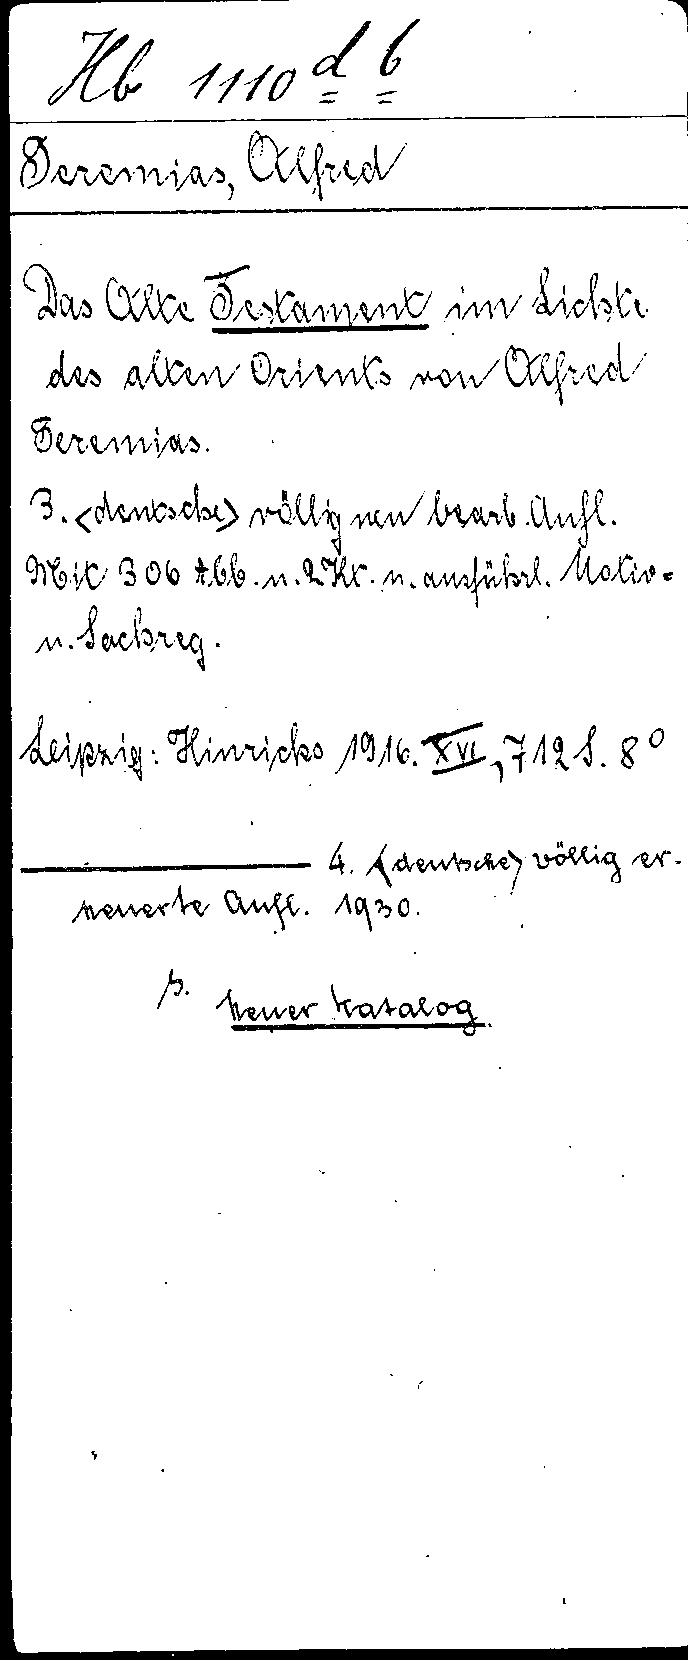 Hb 1110 d b
Jeremias, Alfred
Das Alte Testament im Lichte
des alten Orients von Alfred
Jeremias.
3. <deutsche> völlig neu bearb. Aufl.
Mit 306 Abb. u. 2 Kt. u. ausführl. Motiv-
u. Sachreg.
Leipzig: Hinrichs 1916. XVI, 712 S. 8°
4. <deutsche> völlig er-
neuerte Aufl. 1930.
s. Neuer Katalog.